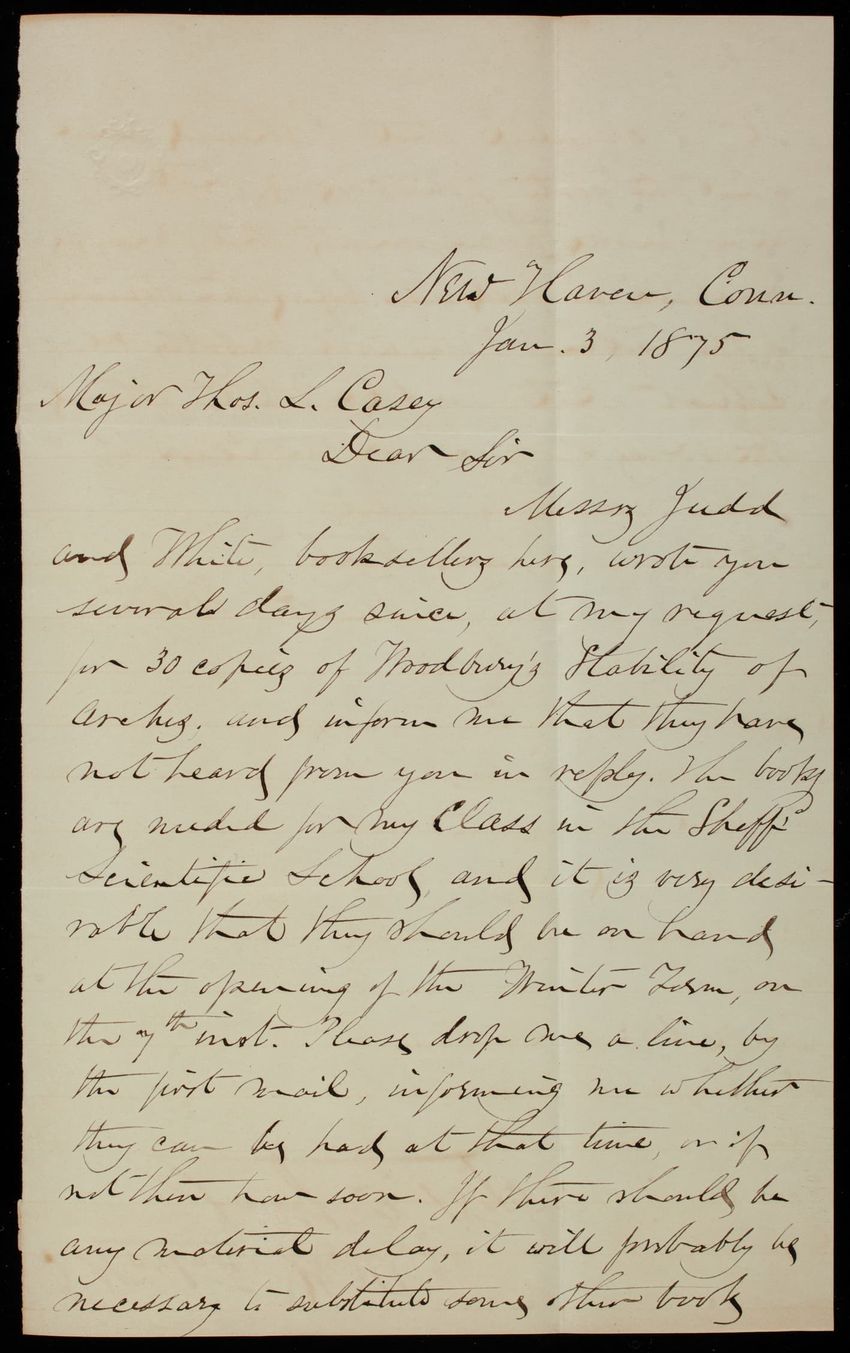 New Haven, Conn.
Jan. 3, 1875
Major Thos. L. Casey
Dear Sir
Messrs Judd
and White, booksellers here, wrote you
several days since, at my request,
for 30 copies of Woodbury's Stability of
Arches. and inform me that they have
not heard from you in reply. The books
are needed for my Class in the Sheff.d
Scientific School, and it is very desi-
rable that they should be on hand
at the opening of the Winter Term, on
the 7th inst. Please drop me a line, by
the first mail, informing me whether
they can be had at that time, or if
not then how soon. If there should be
any material delay, it will probably be
necessary to substitute some other book